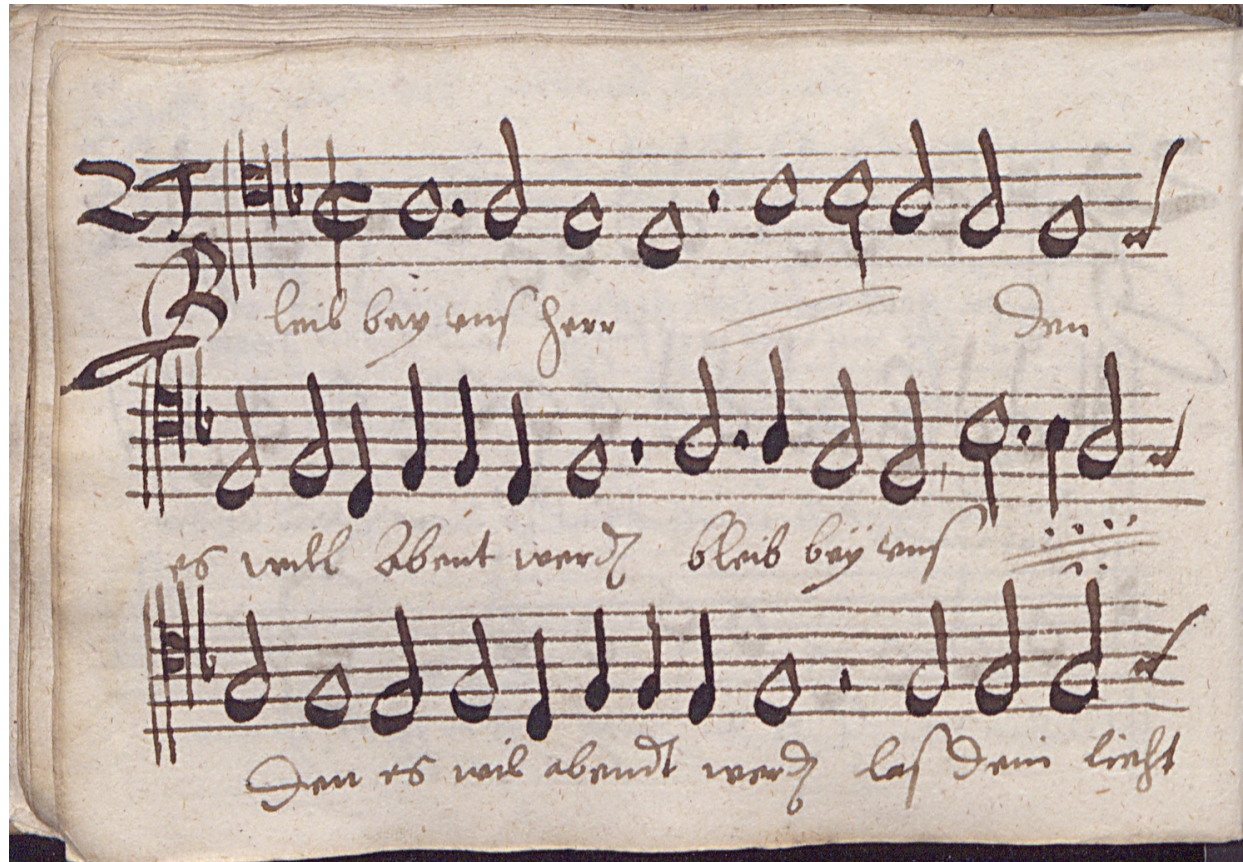 21
Bleib beÿ vns herr den
es will Abent werd bleib beÿ vns
den es wil abendt werd las dein liecht